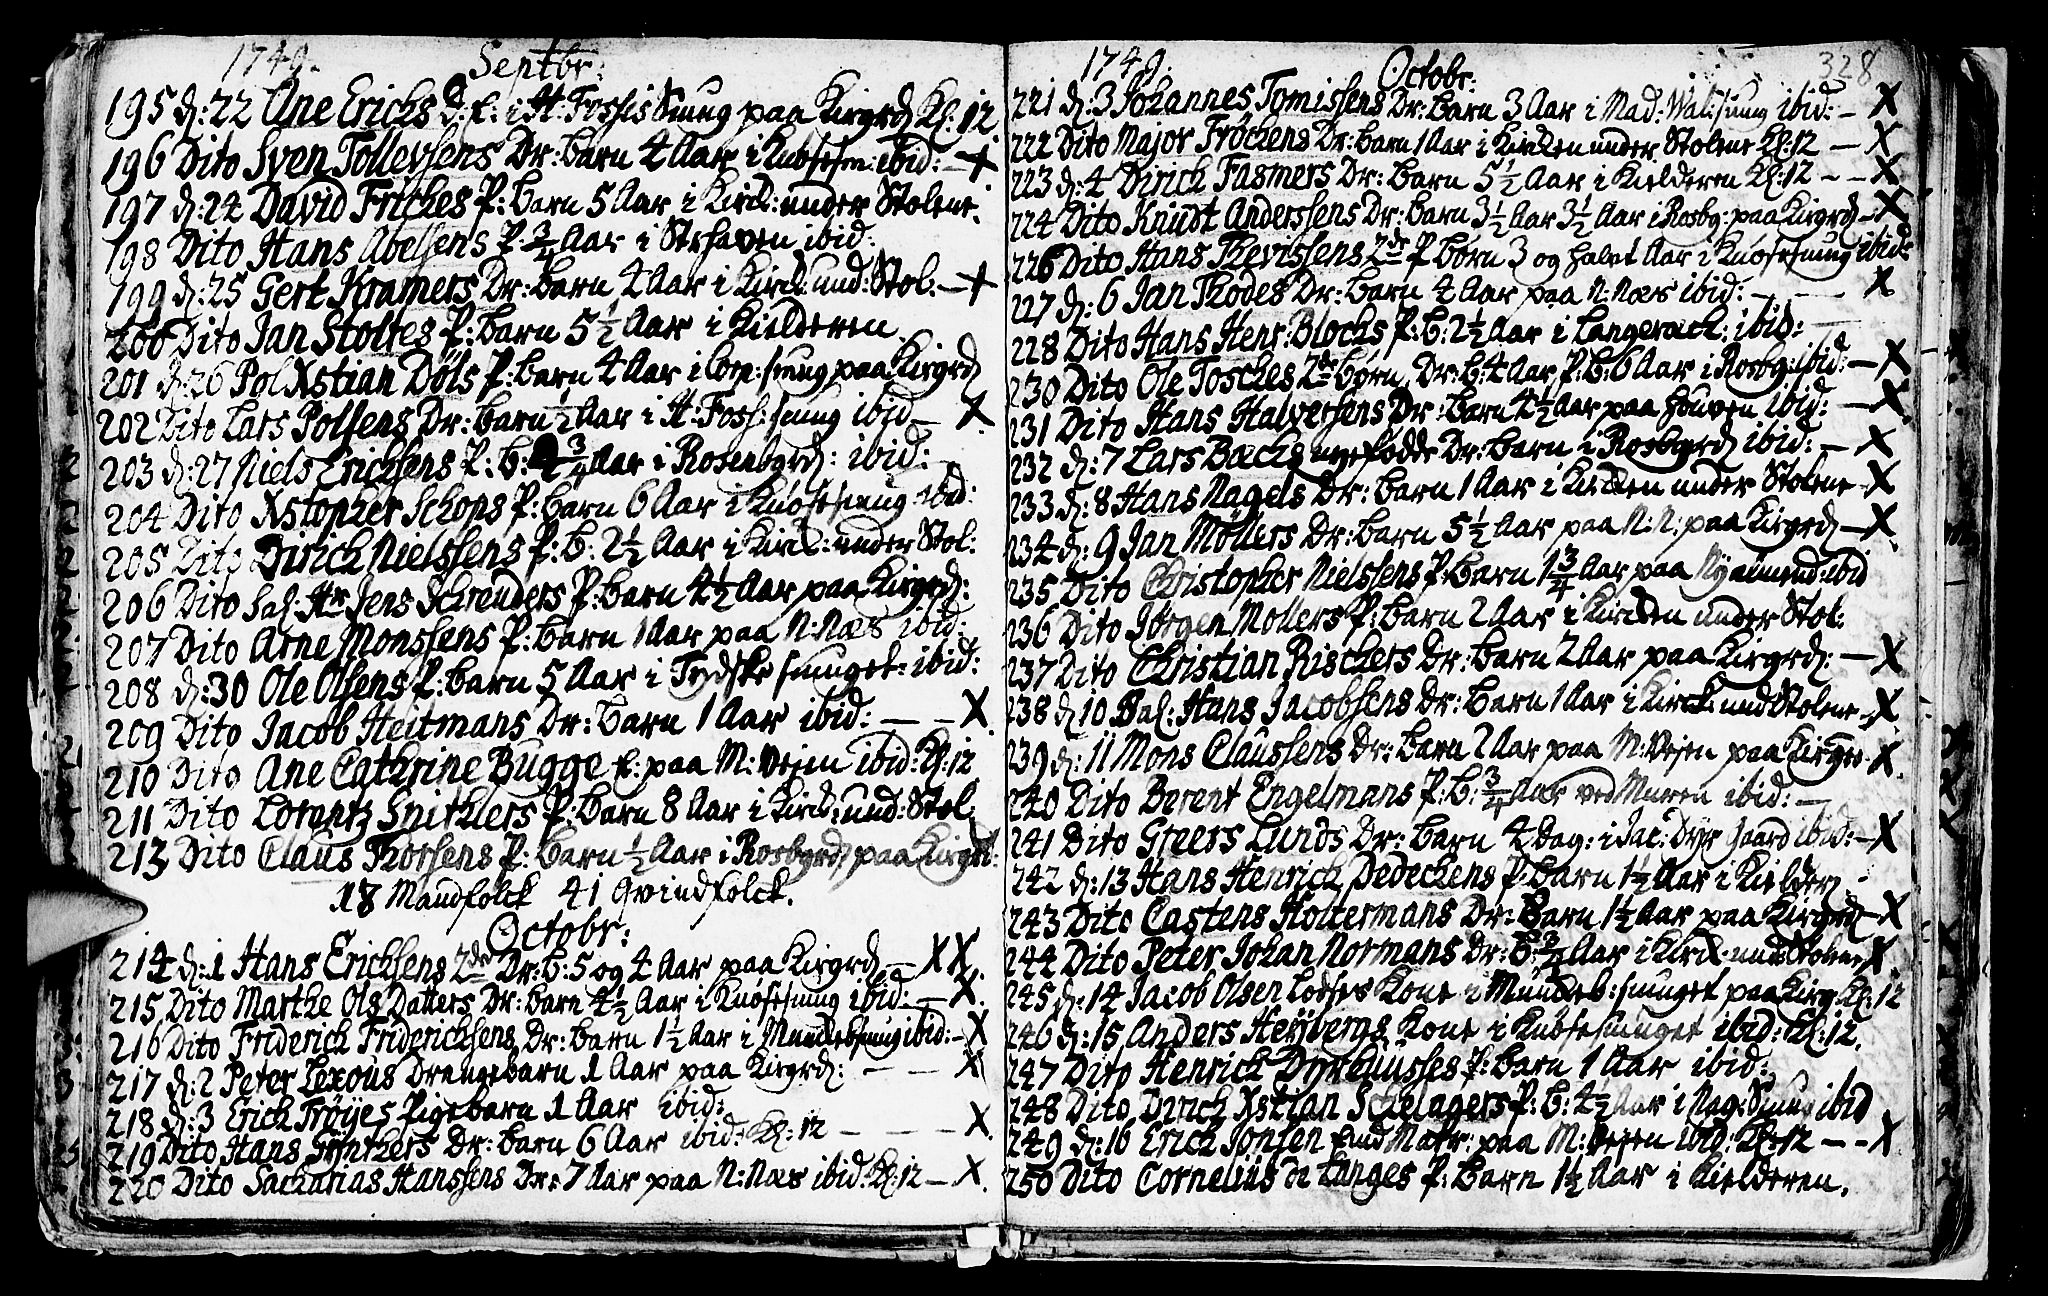 1749. Septbr:
195 d: 22 Ane Erichs D: E: i H: Fossis Smug paa Kirgrd Kl: 12
196 Dito Sven Tollevsens Dr: barn 4 Aar i Knøsesm: ibid: — X
197 d: 24 David Friches P: barn 5 Aar i Kirck: under Stolene.
198 Dito Hans Abelsens P: 3/4 Aar i Strhaven ibid:
199 d: 25 Gert Kramers Dr: barn 4 Aar i Kirck: und: Stol. — X
200 Dito Jan Stoltes P: barn 5 1/2 Aar i Kielderen
201 d: 26 Pol Xstian Döls P: barn 4 Aar i Cor: smug paa Kirgrd
202 Dito Lars Polsens Dr: barn 1/2 Aar i H: Foss: smug ibid — X.
203 d: 27 Niels Ericksens P: b: 3/4 Aar i Rosenbgrd: ibid:
204 Dito Xstopher Schops P: barn 6 Aar i Knøsesmug ibid:
205 Dito Dirich Nielssens P: b: 2 1/2 Aar i Kirck: under Stol:
206 Dito Sal: Hr Jens Schreuders P: barn 4 1/2 Aar paa Kirgrd:
207 Dito Arne Monssens P: barn 1 Aar paa N: Næs ibid:
208 d: 30 Ole Olsens P: barn 5 Aar i Tydske smuget: ibid:
209 Dito Jacob Heitmans Dr: barn 1 Aar ibid: — — X
210 Dito Ane Cathrine Bugge E: paa M: Vejen ibid: Kl: 12
211 Dito Lorentz Snitklers P: barn 8 Aar i Kirck: und: Stol:
213 Dito Claus Thorsens P: barn 1/2 Aar i Rosbgrd: paa Kirgrd:
18 Mandfolck 41 Qvindfolck.
Octobr:
214 d: 1 Hans Ericksens 2de Dr: b: 5 og 4 Aar paa Kirgrd — XX
215 Dito Marthe Ols Datters Dr: barn 4 1/2 Aar i Knøsesmug ibid: — X.
216 Dito Friderich Friderichsens Dr: barn 1 1/2 Aar i Mundebsmug ibid: — X
217 d: 2 Peter Lexous Drengebarn 1 Aar paa Kirgrd: — — X
218 d: 3 Erich Trøyes Pigebarn 1 Aar ibid:
219 Dito Hans Gyntkers Dr: barn 6 Aar ibid: Kl: 12 — — — X.
220 Dito Sacharias Hanssens Dr: 7 Aar paa N: Næs ibid: Kl: 12 — X.
1749. Octobr: 328
221 d: 3 Johannes Tomissens Dr: barn 3 Aar i Mad: Wal: smug ibid: — X
222 Dito Major Fröchens Dr: barn 1 Aar i Kircken under Stolene Kl: 12 — X
223 d: 4 Dirich Fasmers Dr: barn 5 1/2 Aar i Kielderen Kl: 12 — — X
224 Dito Knudt Anderssens Dr: barn 3 1/2 Aar 3 1/2 Aar i Rosbg: paa Kirgrd — X.
226 Dito Hans Thevissens 2de P børn 3 og halvt Aar i Knøsesmug ibid:
227 d: 6 Jan Thodes Dr: barn 4 Aar paa N: Næs ibid: — — X
228 Dito Hans Henr: Blocks P: b: 2 1/2 Aar i Langerack: ibid:
230 Dito Ole Tosches 2de børn, Dr: b: 4 Aar, P: b: 6 Aar i Rosbg: ibid: — X
231 Dito Hans Halversens Dr: barn 4 1/2 Aar paa Houven ibid: — X.
232 d: 7 Lars Backs nyefödde Dr: barn i Rosbgrd ibid: — X
233 d: 8 Hans Nagels Dr: barn 1 Aar i Kircken under Stolene — X
234 d: 9 Jan Möllers Dr: barn 5 1/2 Aar paa N: N: paa Kirgrd — X.
235 Dito Christopher Nielssens P: barn 1 3/4 Aar paa Nyalmend: ibid
236 Dito Jörgen Mollers P: barn 2 Aar i Kircken under Stol:
237 Dito Christian Rischers Dr: barn 2 Aar paa Kirgrd: — X
238 d 10 Sal: Hans Jacobsens Dr: barn 1 Aar i Kirck: und Stolene — X
239 d: 11 Mons Claussens Dr: barn 2 Aar paa M: Vejen paa Kirgrd — X.
240 Dito Berent Engelmans P: b: 3/4 Aar ved Muren ibid: —
241 Dito Greers Lunds Dr: barn 4 Dag: i Jac: Dyr Gaard ibid: — X
242 d: 13 Hans Henrich Dedeckens P: barn 1 1/2 Aar i Kielder:
243 Dito Castens Holtermans Dr: barn 1 1/2 Aar paa Kirgrd — X
244 Dito Peter Johan Normans Dr: b: 3/4 Aar i Kirck: und: Stolene X.
245 d: 14 Jacob Olsen Lodses Kone i Mundeb: smuget paa Kirg: Kl: 12
246 d: 15 Anders Heybergs Kone i Knøsesmuget ibid: Kl: 12.
247 Dito Henrich Dyrehusses P: barn 1 Aar ibid:
248 Dito Dirich Xstian Schelagers P: b: 4 1/2 Aar i Nag: Smug ibid
249 d: 16 Erich Jonsen Matr: paa M: Vejen ibid: Kl: 12 — — X
250 Dito Cornelius de Langes P: barn 1 1/2 Aar i Kielderen.